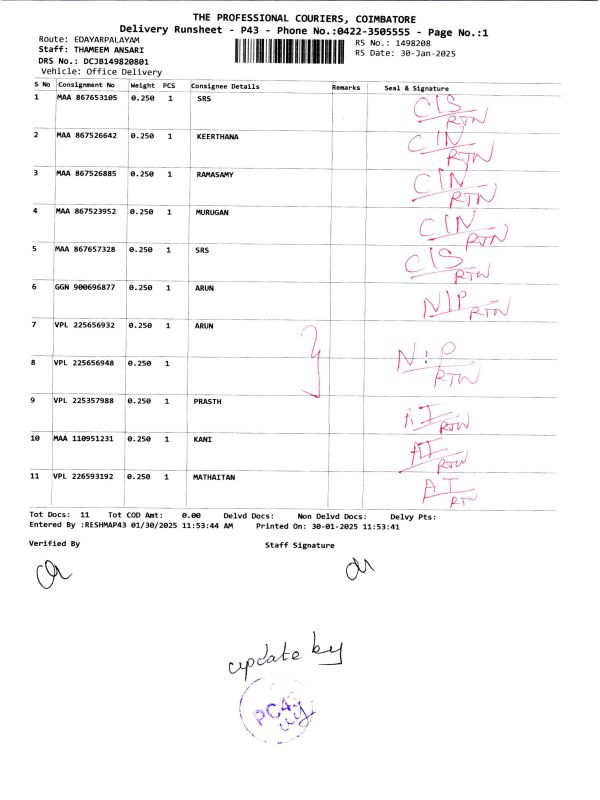 THE PROFESSIONAL COURIERS, COIMBATORE
Delivery Runsheet - P43 - Phone No.:0422-3505555 - Page No.:1
Route: EDAYARPALAYAM
Staff: THAMEEM ANSARI
DRS No.: DCJB149820801
Vehicle: Office Delivery
RS No.: 1498208
RS Date: 30-Jan-2025
S No Consignment No Weight PCS Consignee Details Remarks Seal & Signature
1 MAA 867653105 0.250 1 SRS CIS RTN
2 MAA 867526642 0.250 1 KEERTHANA CIN RTN
3 MAA 867526885 0.250 1 RAMASAMY CIN RTN
4 MAA 867523952 0.250 1 MURUGAN CIN RTN
5 MAA 867657328 0.250 1 SRS CIS RTN
6 GGN 900696877 0.250 1 ARUN NIP RTN
7 VPL 225656932 0.250 1 ARUN N!P RTN
8 VPL 225656948 0.250 1
9 VPL 225357988 0.250 1 PRASTH AI RTN
10 MAA 110951231 0.250 1 KANI AI RTN
11 VPL 226593192 0.250 1 MATHAITAN AI RTN
Tot Docs: 11 Tot COD Amt: 0.00 Delvd Docs: Non Delvd Docs: Delvy Pts:
Entered By :RESHMAP43 01/30/2025 11:53:44 AM Printed On: 30-01-2025 11:53:41
Verified By Staff Signature
update by
PC43